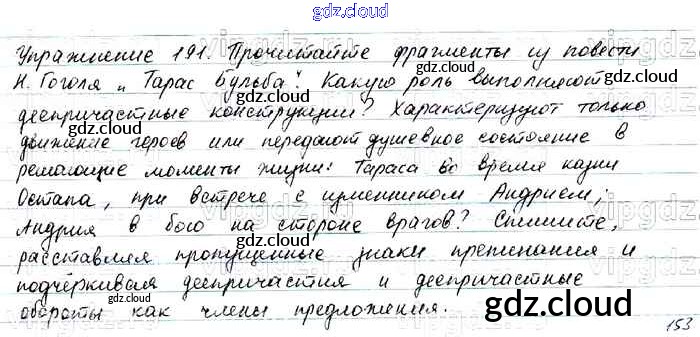 gdz.cloud
Упражнение 191. Прочитайте фрагменты из повести
gdz.cloud
Н. Гоголя „Тарас Бульба“. Какую роль выполняют
gdz.cloud
деепричастные конструкции? Характеризуют только
gdz.cloud
движение героев или передают душевное состояние в
решающие моменты жизни: Тараса во время казни
gdz.cloud
Остапа, при встрече с изменником Андрием;
Андрия в бою на стороне врагов? Спишите,
gdz.cloud
расставляя пропущенные знаки препинания и
подчёркивая деепричастия и деепричастные
gdz.cloud
gdz.cloud
обороты как члены предложения.
153